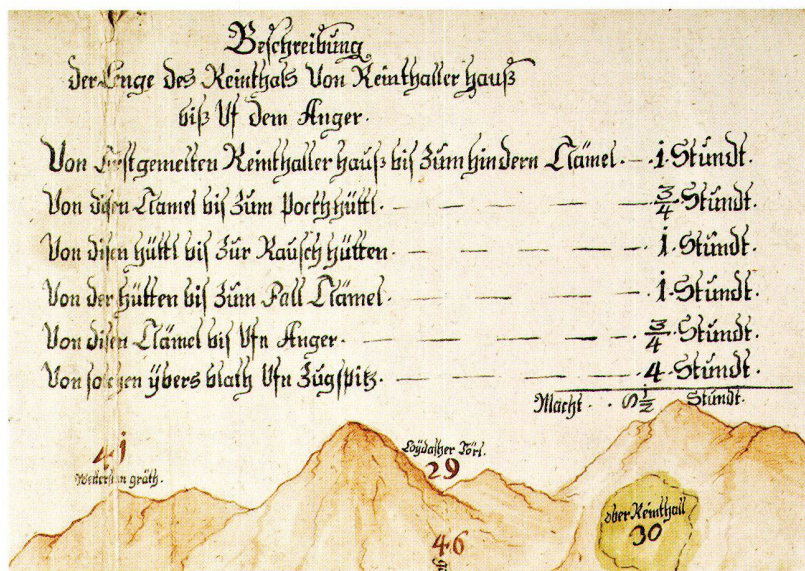 Beschreibung
der Enge des Reinthals Von Reinthaller hauß
biß Vf dem Anger.
Von Erstgemelten Reinthaller hauß bis Zum hindern Clämel. — 1. Stundt.
Von disen Clamel bis Zum Pockh hüttl. — — — — 3/4. Stundt.
Von disen hüttl bis Zur Rausch hütten. — — — — 1. Stundt.
Von der hütten bis Zum Fall Clämel. — — — — 1. Stundt.
Von disen Clämel bis Vfn Anger. — — — — 3/4. Stundt.
Von solchen ybers blath Vfn Zugspitz. — — — — 4. Stundt.
Macht . . 8 1/2 Stundt.
41
Wetterstein gräth.
Törl.
29
ober Reinthall
30
46